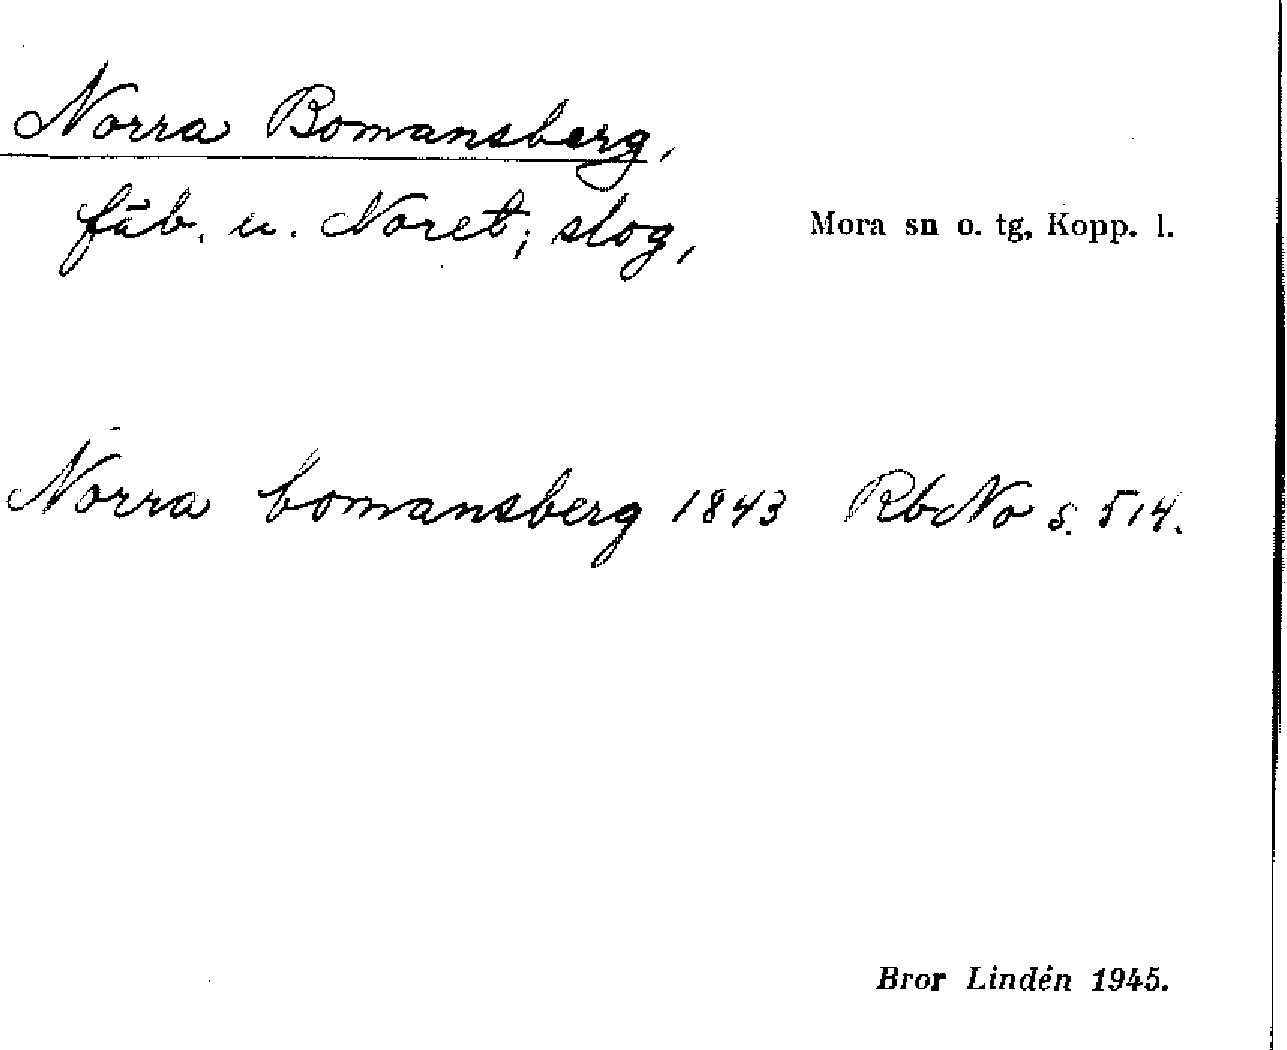 Norra Bomansberg,
fäb. u. Noret; slog,
Mora sn o. tg, Kopp. l.
Norra bomansberg 1843 RbNo s. 514.
Bror Lindén 1945.